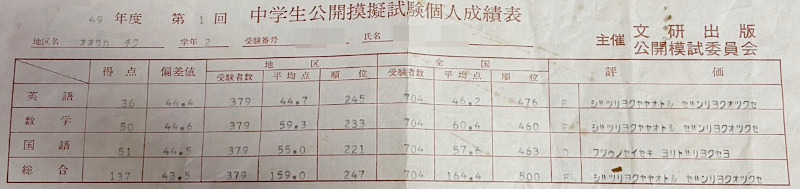 49 年度 第 1 回 中学生公開摸擬試験個人成績表
地区名 オオサカ チク 学年 2 受験番号 氏名 主催 文研出版 公開模試委員会
得点 偏差値 地区 全国 評価
受験者数 平均点 順位 受験者数 平均点 順位
英語 36 44.4 379 44.7 245 704 46.2 476 E ジツリヨクヤヤオトル ゼンリヨクオツクセ
数学 50 44.6 379 59.3 233 704 60.4 460 E ジツリヨクヤヤオトル ゼンリヨクオツクセ
国語 51 44.5 379 55.0 221 704 57.6 463 D フツウノセイセキ ヨリドリヨクセヨ
総合 137 43.5 379 159.0 247 704 164.4 500 E ジツリヨクヤヤオトル ゼンリヨクオツクセ